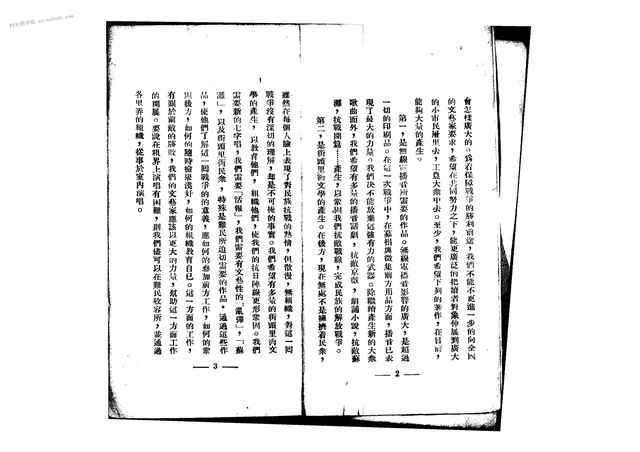 會怎樣廣大的。爲着保障戰爭的勝利前途,我們不能不更進一步的向全國
的文藝家要求,希望在共同努力之下,能更廣泛的把讀者對象伸展到廣大
的小市民層里去,工農大衆中去。至少,我們希望下列的著作,在目前,
能夠大量的產生。
第一,是無線電播音所需要的作品。無線電播音影響的廣大,是超過
一切的印刷品。在這一次戰爭中,在募捐與徵集前方用品方面,播音已表
現了最大的力量。我們決不能放棄這強有力的武器。除繼續產生新的大衆
歌曲而外,我們希望有多量的播音話劇,抗敵京戲,朗誦小說,抗敵蘇
灘,抗戰開篇……產生,以鞏固我們抗敵戰線,完成民族的解放戰爭。
第二,是街頭里衖文學的產生。在後方,現在無處不是擁擠着民衆,
— 2 —
雖然在每個人臉上表現了對民族抗戰的熱情,但散漫,無組織,對這一回
戰爭沒有深切的理解,却是不可掩的事實。我們希望有多量的街頭里衖文
學的產生,以教育他們,組織他們,使我們的抗日陣線更形鞏固。我們
需要新的七字唱,我們需要「活報」,我們需要有文藝性的「亂彈」,「蘇
灘」,以及街頭里衖民衆,特殊是難民所迫切需要的作品。通過這些作
品,使他們了解這一回戰爭的意義,應如何的參加前方工作,如何的鞏
固後方,如何的隨時檢舉漢奸,如何的組織教育自己。這一方面的工作,
有關於前敵的勝敗,我們的文藝家應該以更大的力量,幫助這一方面工作
的開展。要說在租界上演唱有困難,則我們儘可以在難民收容所,並通過
各里弄的組織,從事於室內演唱。
— 3 —